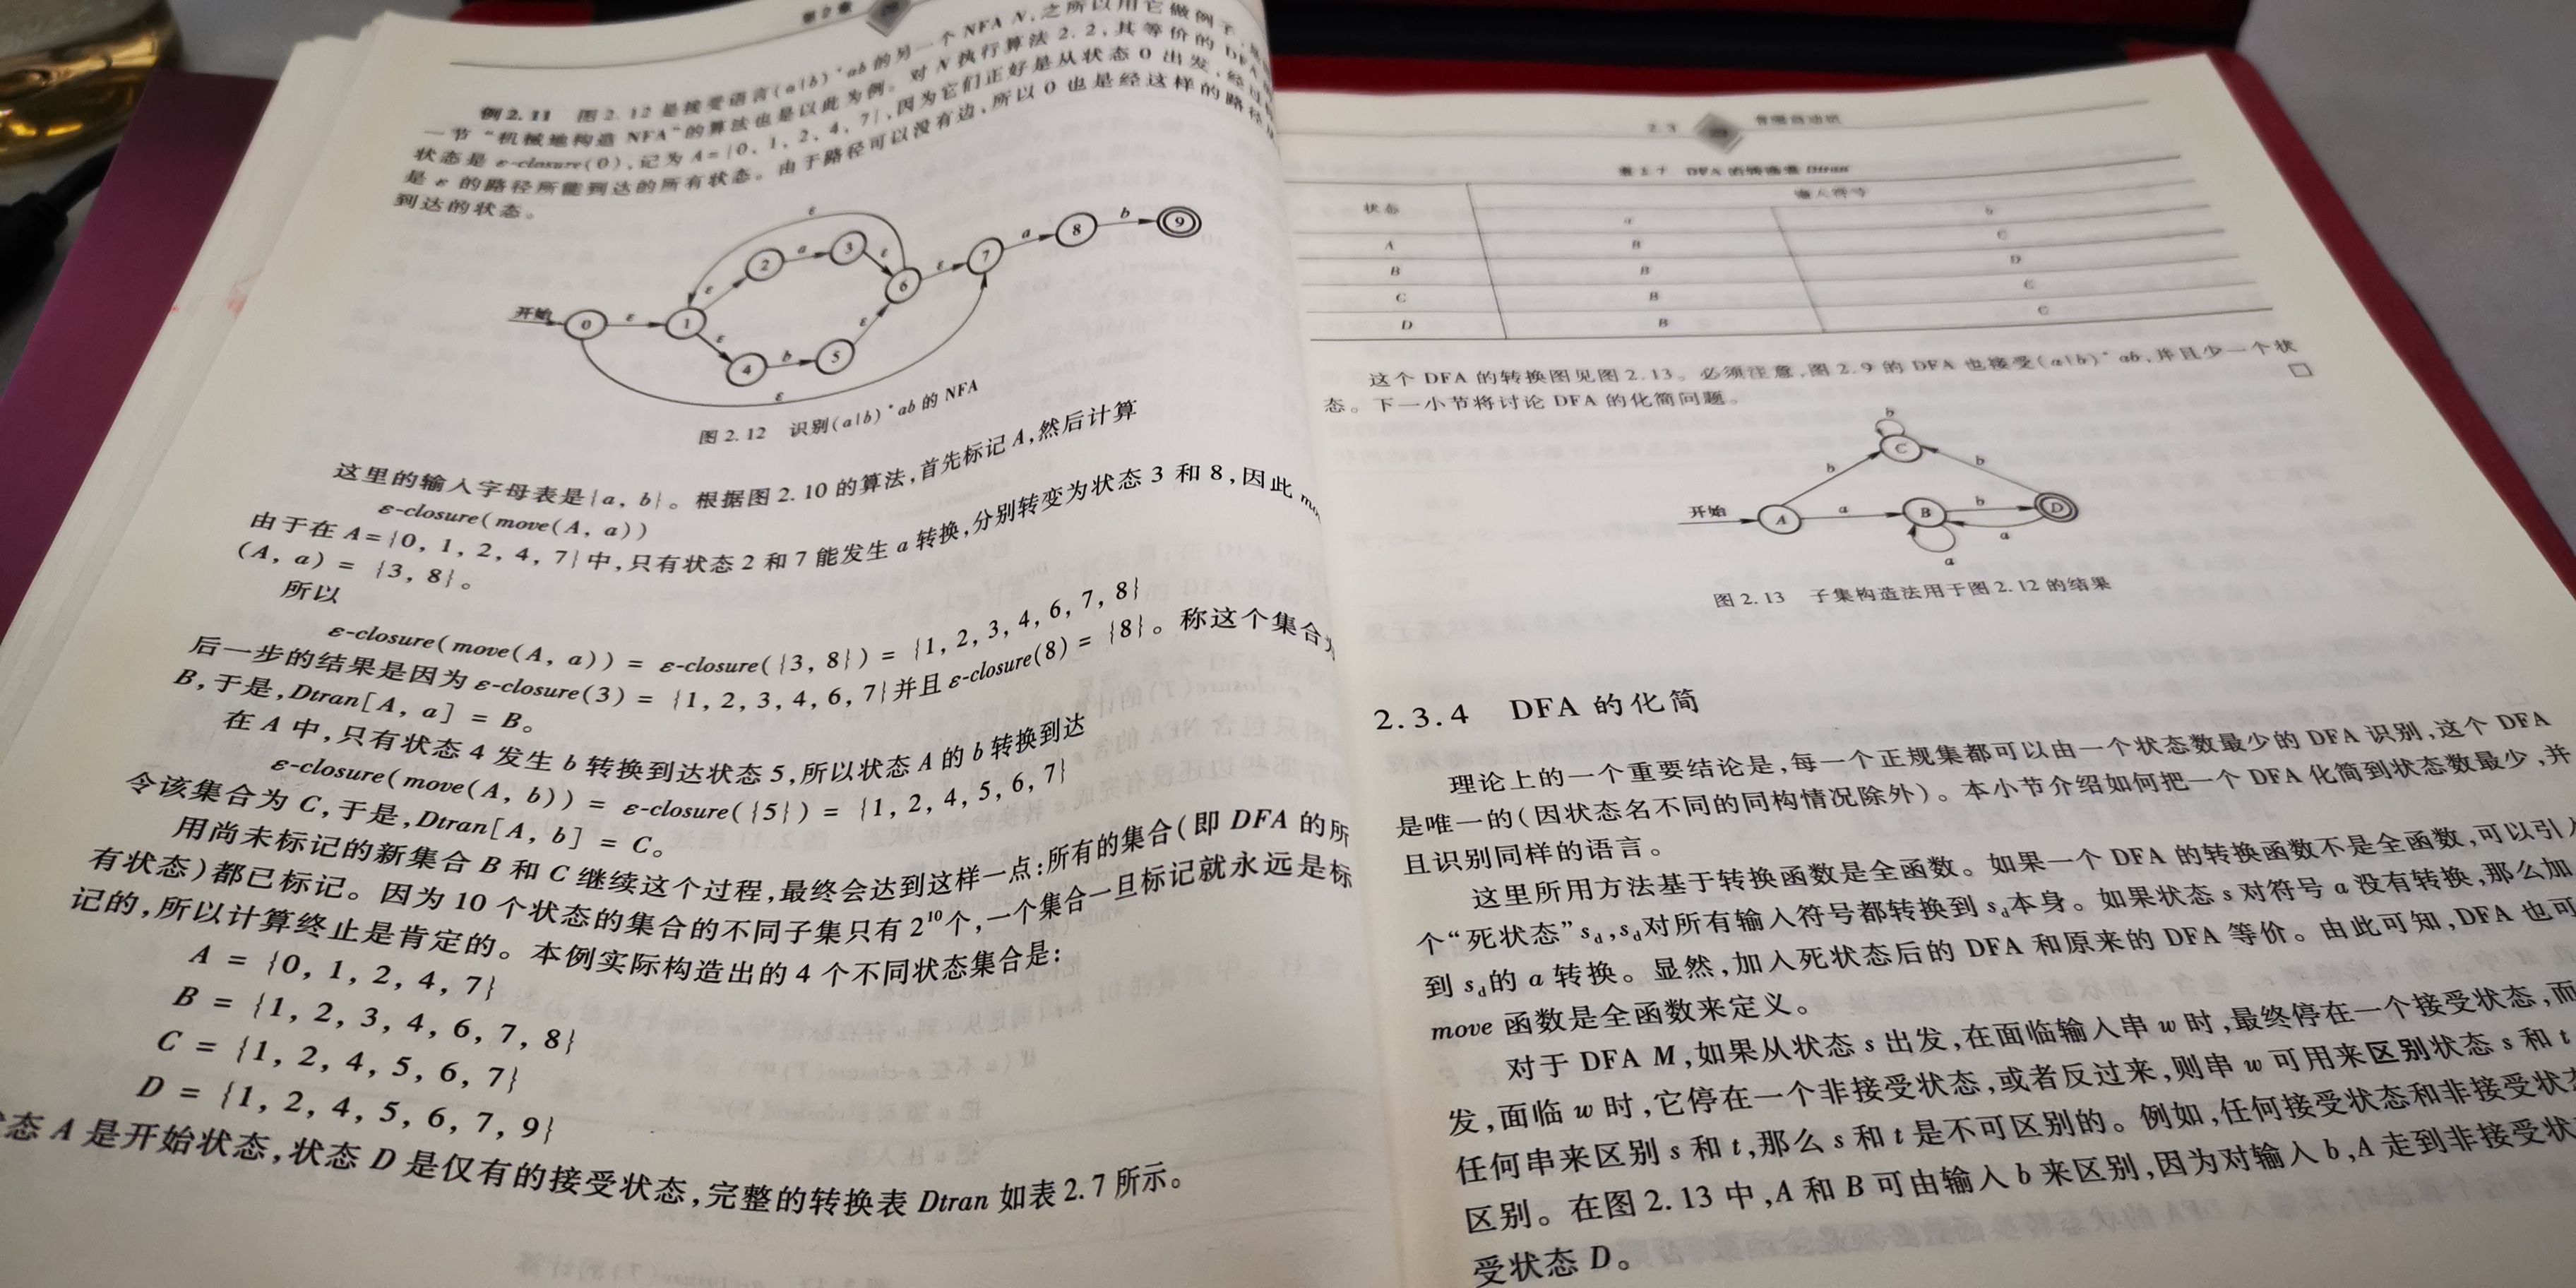 第2章
例2.11 图2.12是接受语言(a|b)*ab的另一个NFA N,之所以用它做例子,是
一节“机械地构造NFA”的算法也是以此为例。对N执行算法2.2,其等价的DFA
状态是ε-closure(0),记为A={0, 1, 2, 4, 7},因为它们正好是从状态0出发,经过
是ε的路径所能到达的所有状态。由于路径可以没有边,所以0也是经这样的路径
到达的状态。
开始 0 ε 1 ε 2 a 3 ε 6 ε 7 a 8 b 9
ε 4 b 5 ε
ε
ε
图2.12 识别(a|b)*ab的NFA
这里的输入字母表是{a, b}。根据图2.10的算法,首先标记A,然后计算
ε-closure(move(A, a))
由于在A={0, 1, 2, 4, 7}中,只有状态2和7能发生a转换,分别转变为状态3和8,因此
(A, a) = {3, 8}。
所以
ε-closure(move(A, a)) = ε-closure({3, 8}) = {1, 2, 3, 4, 6, 7, 8}
后一步的结果是因为ε-closure(3) = {1, 2, 3, 4, 6, 7}并且ε-closure(8) = {8}。称这个集合
B,于是,Dtran[A, a] = B。
在A中,只有状态4发生b转换到达状态5,所以状态A的b转换到达
ε-closure(move(A, b)) = ε-closure({5}) = {1, 2, 4, 5, 6, 7}
令该集合为C,于是,Dtran[A, b] = C。
用尚未标记的新集合B和C继续这个过程,最终会达到这样一点:所有的集合(即DFA的所
有状态)都已标记。因为10个状态的集合的不同子集只有2¹⁰个,一个集合一旦标记就永远是标
记的,所以计算终止是肯定的。本例实际构造出的4个不同状态集合是:
A = {0, 1, 2, 4, 7}
B = {1, 2, 3, 4, 6, 7, 8}
C = {1, 2, 4, 5, 6, 7}
D = {1, 2, 4, 5, 6, 7, 9}
态A是开始状态,状态D是仅有的接受状态,完整的转换表Dtran如表2.7所示。
2.3 有限自动机
表2.7 DFA的转换表Dtran
状态 输入符号
a b
A B C
B B D
C B C
D B C
这个DFA的转换图见图2.13。必须注意,图2.9的DFA也接受(a|b)*ab,并且少一个状
态。下一小节将讨论DFA的化简问题。 □
开始 A a B b D
b C b
b
a
a
图2.13 子集构造法用于图2.12的结果
2.3.4 DFA的化简
理论上的一个重要结论是,每一个正规集都可以由一个状态数最少的DFA识别,这个DFA
是唯一的(因状态名不同的同构情况除外)。本小节介绍如何把一个DFA化简到状态数最少,并
且识别同样的语言。
这里所用方法基于转换函数是全函数。如果一个DFA的转换函数不是全函数,可以引入
个“死状态”s_d,s_d对所有输入符号都转换到s_d本身。如果状态s对符号a没有转换,那么加
到s_d的a转换。显然,加入死状态后的DFA和原来的DFA等价。由此可知,DFA也可
move函数是全函数来定义。
对于DFA M,如果从状态s出发,在面临输入串w时,最终停在一个接受状态,而
发,面临w时,它停在一个非接受状态,或者反过来,则串w可用来区别状态s和t
任何串来区别s和t,那么s和t是不可区别的。例如,任何接受状态和非接受状态
区别。在图2.13中,A和B可由输入b来区别,因为对输入b,A走到非接受状
受状态D。